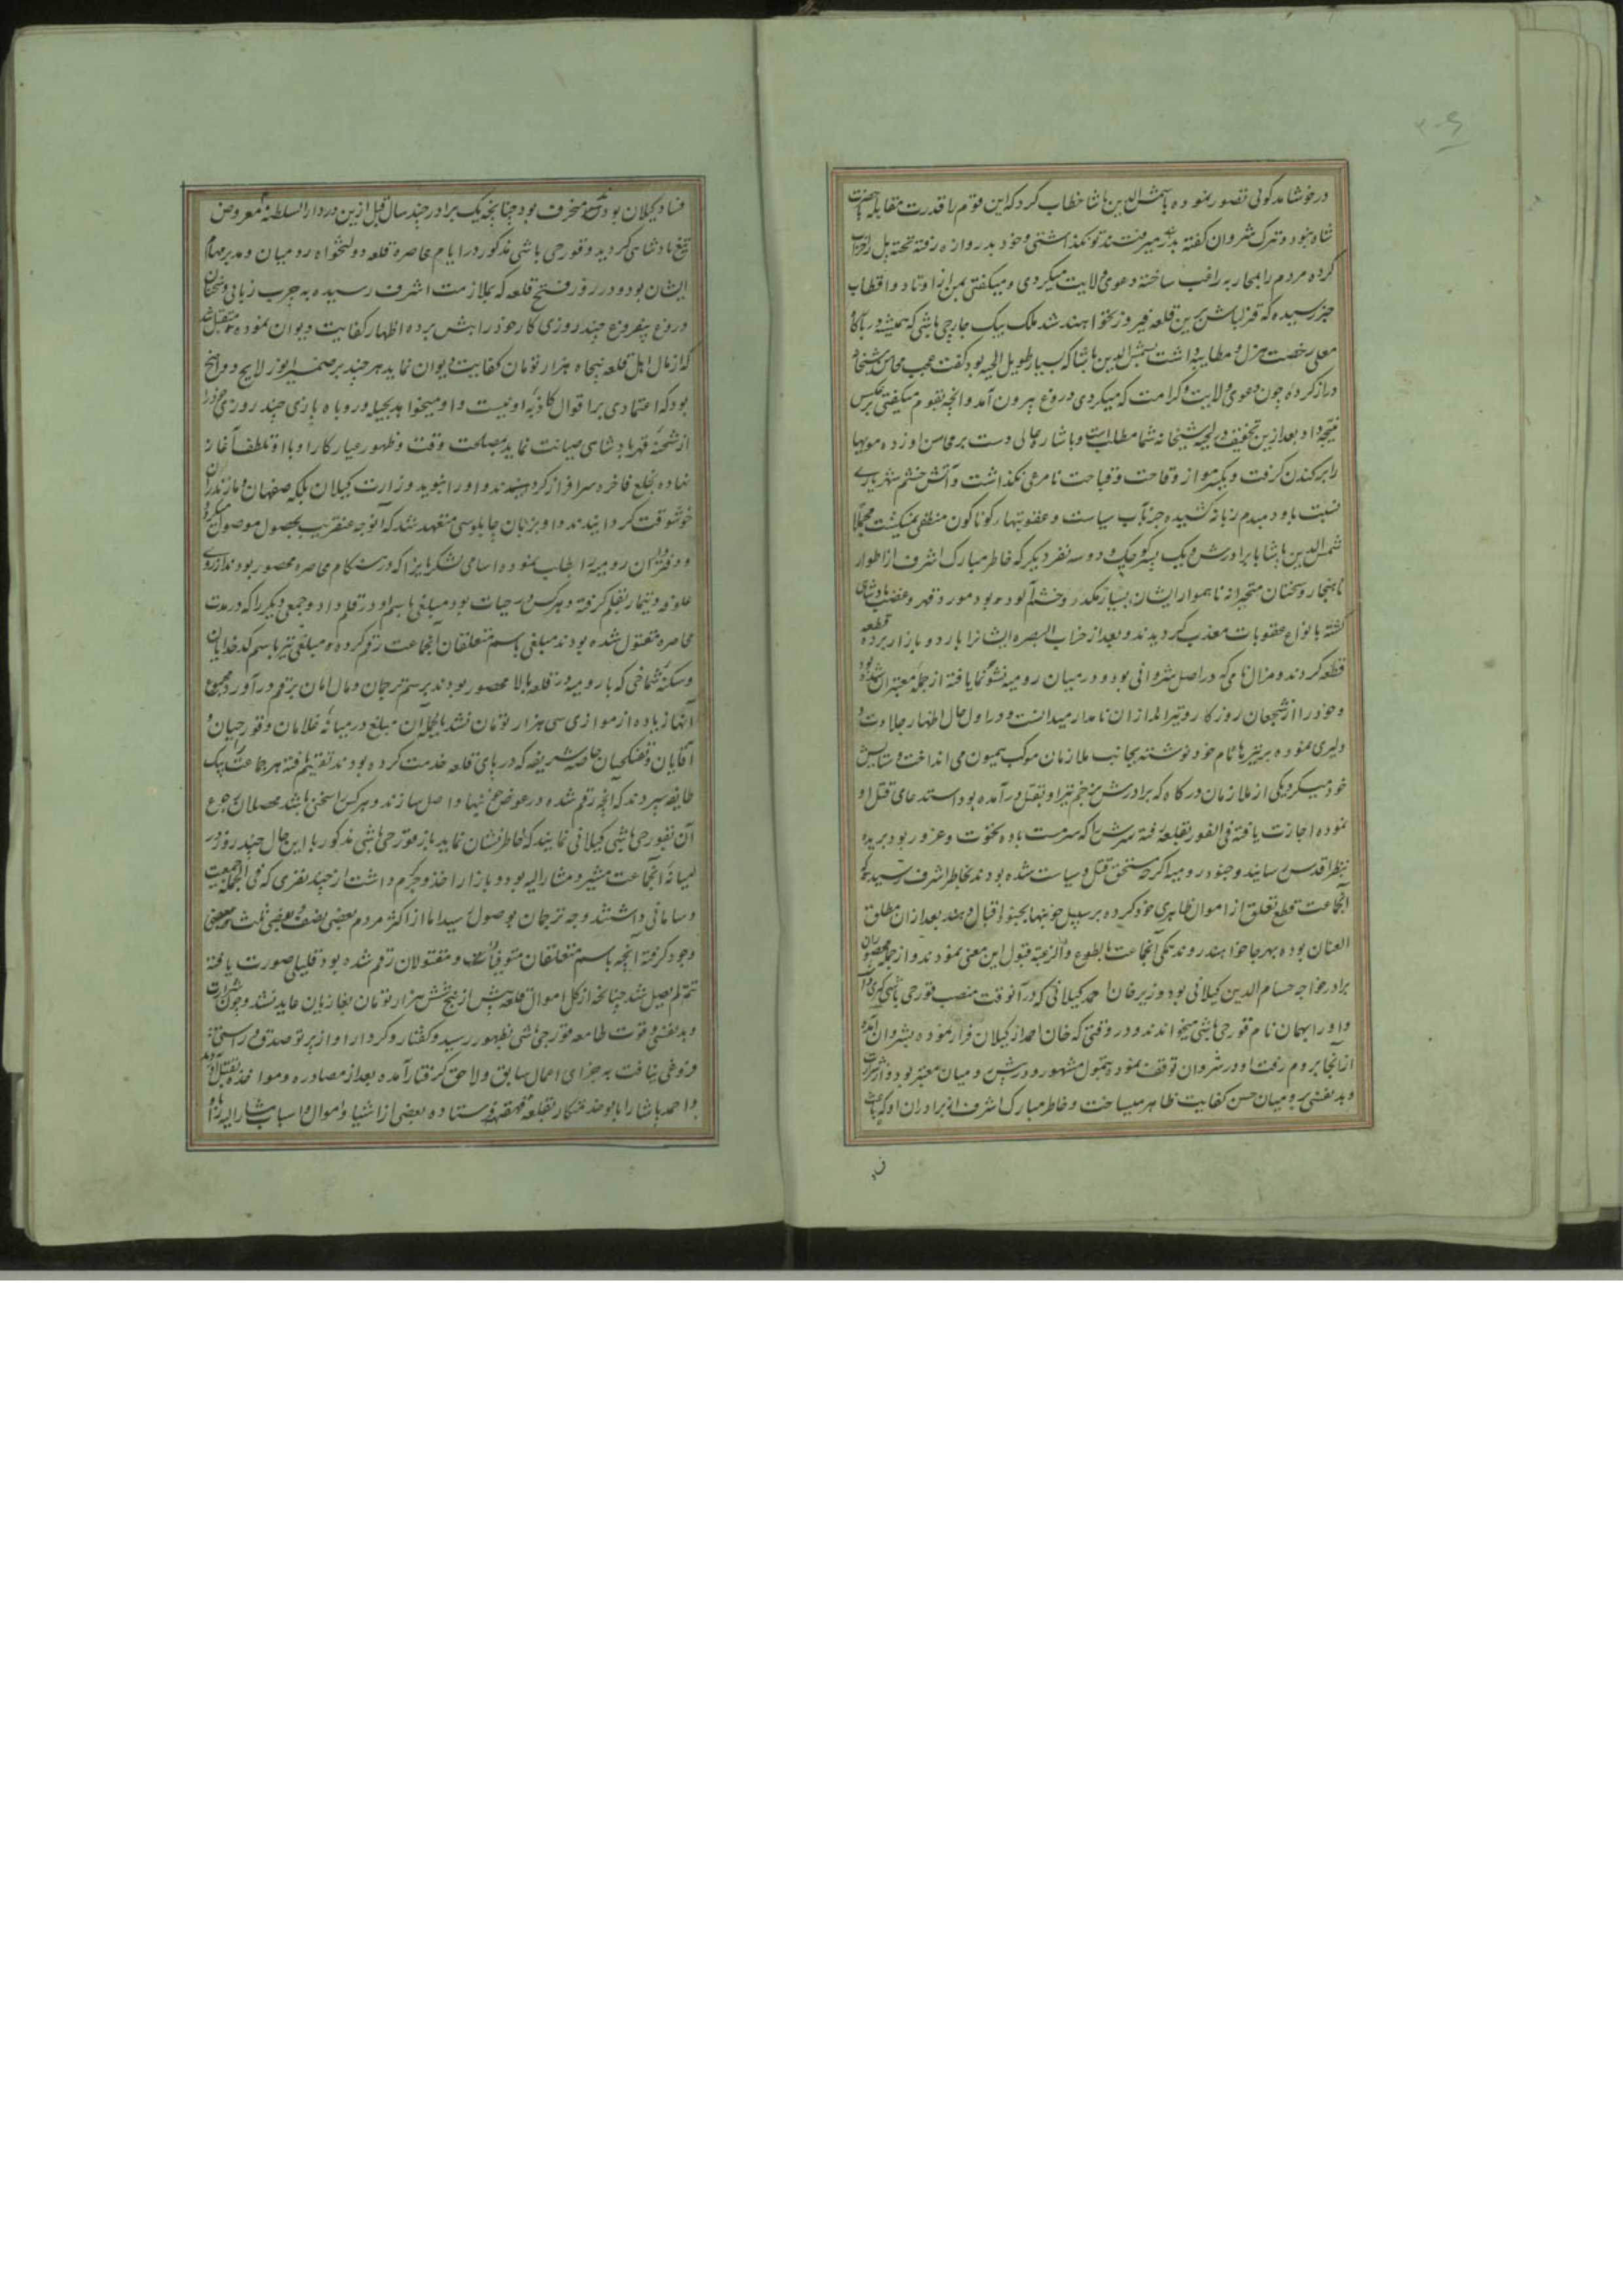 ۲۰۶
در خوشامد کوئی تقصیر ننموده شمس الدین پاشا خطاب کرد که این قوم را قدرت مقابله حضرت
شاه نبود و ترک شروان کفته بدر میرفتند تو نکذاشتی و خود بدروازه رفته تخته پل را خراب
کرده مردم را بمحاربه راغب ساخته دعوی ولایت میکردی و میکفتی بمن از اوتاد و اقطاب
خبر رسیده که قزلباش برین قلعه فیروز نخواهند شد ملک بیک جارچی باشی که همیشه در
معلی رخصت هزل و مطایبه داشت بشمس الدین پاشا که بسیار طویل اللحیه بود کفت عجب محاسن
دراز کرده چون دعوی ولایت و کرامت که میکردی دروغ بیرون آمد و آنچه بقوم میکفتی برعکس
نتیجه داد بعد ازین تخفیف در لحیه شیخانه شما مطلب است و باشاره عالی دست بر محاسن او زده مویها
را برکندن کرفت و یکسر مو از وقاحت و قباحت نامرعی نکذاشت و آتش خشم شهریاری
نسبت باو دمبدم زبانه کشیده جز بآب سیاست و عقوبتهای کوناکون منطفی نمیکشت مجملا
شمس الدین پاشا با برادرش و یک پسر کوچک و دو سه نفر دیکر که خاطر مبارک اشرف از اطوار
ناهنجار و سخنان متحیرانه ناهموار ایشان بسیار مکدر و خشم آلود بود مورد قهر و غضب پادشاهی
کشته بانواع عقوبات معذب کردیدند و بعد از ایشانرا باردو بازار برده قطعه
قطعه کردند و نامی که در اصل شروانی بود و در میان رومیه نشو و نما یافته از جمله معتبران شده بود
و خود را از شجعان روزکار و تیراندازان نامدار میدانست و در اول حال اظهار جلادت و
دلیری نموده بر تیرها نام خود نوشته بجانب ملازمان موکب همیون می انداخت و ستایش
خود میکرد یکی از ملازمان درکاه که برادرش بزخم تیر او بقتل درآمده بود استدعای قتل او
نموده اجازت یافته فی الفور بقلعه رفته سرش را که سرمست باده نخوت و غرور بود بریده
بنظر اقدس رسانید و جنود رومیه اکرچه مستحق قتل و سیاست شده بودند بخاطر اشرف رسید که
آنجماعت قطع تعلق از اموال ظاهری خود کرده بر سبیل خونبها بجنود اقبال دهند بعد از ان مطلق
العنان بوده بهر جا خواهند روند همکی آنجماعت بالطوع والرغبه قبول این معنی نمودند و از جمله محصوران
برادر خواجه حسام الدین کیلانی بود وزیر خان احمد کیلانی که در آنوقت منصب قورچی باشی کری داشت
و او را بهمان نام قورچی باشی میخواندند و در وقتی که خان احمد از کیلان فرار نموده بشروان آمده
از آنجا بروم رفت او در شروان توقف نموده بتمول مشهور و در پیش رومیان معتبر بود و از شرارت
و بدنفسی برومیان حسن کفایت ظاهر میساخت و خاطر مبارک اشرف از برادران او که باعث
فساد
فساد کیلان بودند منحرف بود چنانچه یک برادر چند سال قبل ازین در دار السلطنه معروض
تیغ پادشاهی کردید و قورچی باشی مذکور در ایام محاصره قلعه دولتخواه رومیان و مدبر مهام
ایشان بود و در روز فتح قلعه که بملازمت اشرف رسیده به چرب زبانی و سخنان
دروغ بیفروغ چند روزی کار خود را پیش برده اظهار کفایت دیوان نموده متقبل شد
که از مال اهل قلعه پنجاه هزار تومان کفایت دیوان نماید هر چند بر ضمیر انور لایح و واضح
بود که اعتمادی بر اقوال کاذبه او نیست و او میخواهد بحیله و روباه بازی چند روزی خود را
از شحنه قهر پادشاهی صیانت نماید بمصلحت وقت و ظهور عیار کار او با او تلطف آغاز
نهاده بخلع فاخره سرافراز کردانیدند و او را بنوید وزارت کیلان بلکه صفهان و مازندران
خوشوقت کردانیدند و او بزبان چاپلوسی متعهد شد که آنوجه عنقریب بحصول موصول میکردد
و دفتر داران رومیه را طلب نموده اسامی لشکریانرا که در هنکام محاصره محصور بودند از روی
علوفه و تیمار بقلم کرفته و هرکس در حیات بود مبلغی باسم او در قلم داد و جمعی دیکر را که در مدت
محاصره مقتول شده بودند مبلغی باسم متعلقان آنجماعت رقم کرده و مبلغی نیز باسم کدخدایان
و سکنه شماخی که با رومیه در قلعه بالا محصور بودند برسم ترجمان و مال امان برقم درآورد مجموع
آنها زیاده از موازی سی هزار تومان نشد بالجمله آن مبلغ در میانه غلامان و قورچیان و
آقایان و تفنکچیان خاصه شریفه که در پای قلعه خدمت کرده بودند تقسیم یافته هر جماعت را بیک
طایفه سپردند که آنچه رقم شده در عوض خونبها واصل سازند و هر کس را سخنی باشد محصلان رجوع
آن بقورچی باشی کیلانی نمایند که خاطرنشان نماید باز قورچی باشی مذکور با این حال چند روز در
میانه آنجماعت مشیر و مشار الیه بود و بازار اخذ و جر کرم داشت از چند نفری که فی الجمله جمعیت
و سامانی داشتند وجه ترجمان بوصول رسید اما از اکثر مردم بعضی نصف و بعضی ثلث و بعضی
وجود کرفته آنچه باسم متعلقان متوفیات و مقتولان رقم شده بود قلیلی صورت یافته
تتمه لم یصل شد چنانچه از کل اموال قلعه بیش از پنج شش هزار تومان بغازیان عاید نشد و چون شرارت
و بدنفسی و قوت طامعه قورچی باشی بظهور رسید و کفتار و کردار او از پرتو صدق و راستی
فروغی نیافت به جزای اعمال سابق و لاحق کرفتار آمده بعد از مصادره و مواخذه بقتل آمد
و احمد پاشا را با بو بقلعه قهقهه فرستاده بعضی از اشیا و اموال و اسباب مشار الیه را